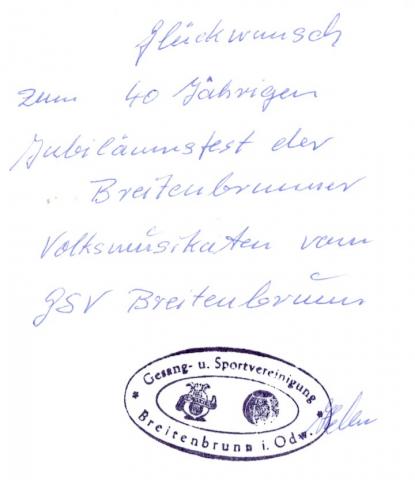 Glückwunsch
zum 40 Jährigen
Jubiläumsfest der
Breitenbrunner
Volksmusikaten vom
GSV Breitenbrunn
Gesang- u. Sportvereinigung
* Breitenbrunn i. Odw. *